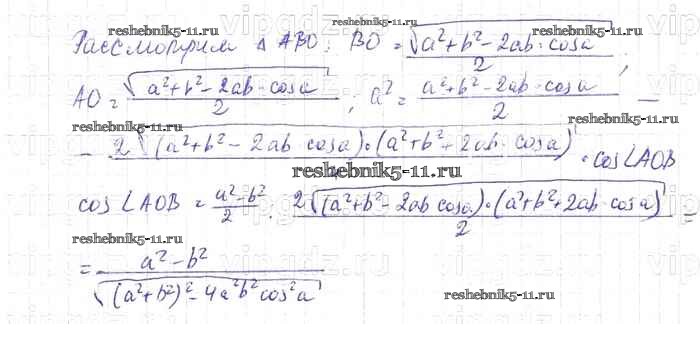 reshebnik5-11.ru
reshebnik5-11.ru
Рассмотрим Δ ABO: BO = √(a²+b²-2ab·cosa)/2;
reshebnik5-11.ru
AO = √(a²+b²-2ab·cosa)/2; a² = (a²+b²-2ab·cosa)/2 -
reshebnik5-11.ru
reshebnik5-11.ru
- 2√((a²+b²-2ab cosa)·(a²+b²+2ab·cosa)) · cos∠AOB
reshebnik5-11.ru
cos∠AOB = (a²-b²)/2 : 2√((a²+b²-2ab cosa)·(a²+b²+2ab·cosa))/2 =
reshebnik5-11.ru
reshebnik5-11.ru
= (a²-b²)/√((a²+b²)²-4a²b²cos²a)
reshebnik5-11.ru
reshebnik5-11.ru